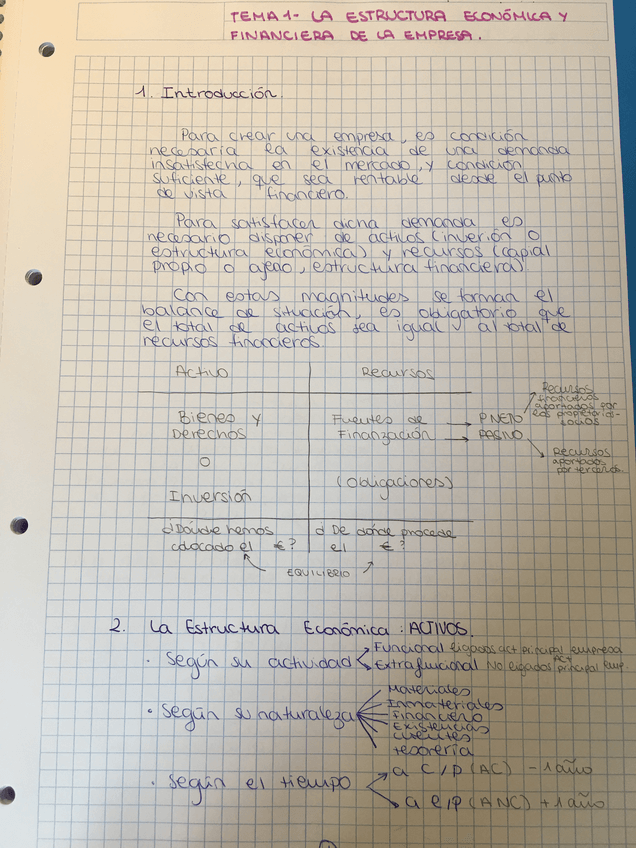 TEMA 1- LA ESTRUCTURA ECONÓMICA Y
FINANCIERA DE LA EMPRESA.
1. Introducción.
Para crear una empresa, es condición
necesaria la existencia de una demanda
insatisfecha en el mercado, y condición
suficiente, que sea rentable desde el punto
de vista financiero.
Para satisfacer dicha demanda es
necesario disponer de activos (inversión o
estructura económica) y recursos (capial
propio o ajeno, estructura financiera)
Con estas magnitudes se forman el
balance de situación, es obligatorio que
el total de activos sea igual al total de
recursos financieros.
Activo Recursos
Bienes y
Derechos
O
Inversión
Fuentes de → P NETO
Finanzación → PASIVO
(Obligaciones)
Recursos
financieros
aportados por
los propietarios-
socios
Recursos
aportados
por terceros.
¿Dónde hemos
colocado el €?
¿De dónde procede
el €?
EQUILIBRIO
2. La Estructura Económica: ACTIVOS.
· Según su actividad
Funcional ligados act principal empresa
Extrafuncional No ligados act principal emp.
· Según su naturaleza
Materiales
Inmateriales
Financiero
Existencias
Clientes
Tesorería
· Según el tiempo
a C/P (AC) - 1 año
a l/P (ANC) + 1 año